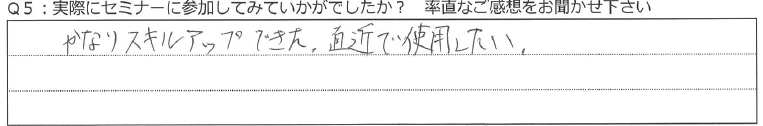 Q5：実際にセミナーに参加してみていかがでしたか？　率直なご感想をお聞かせ下さい
かなりスキルアップできた。直近で使用したい。